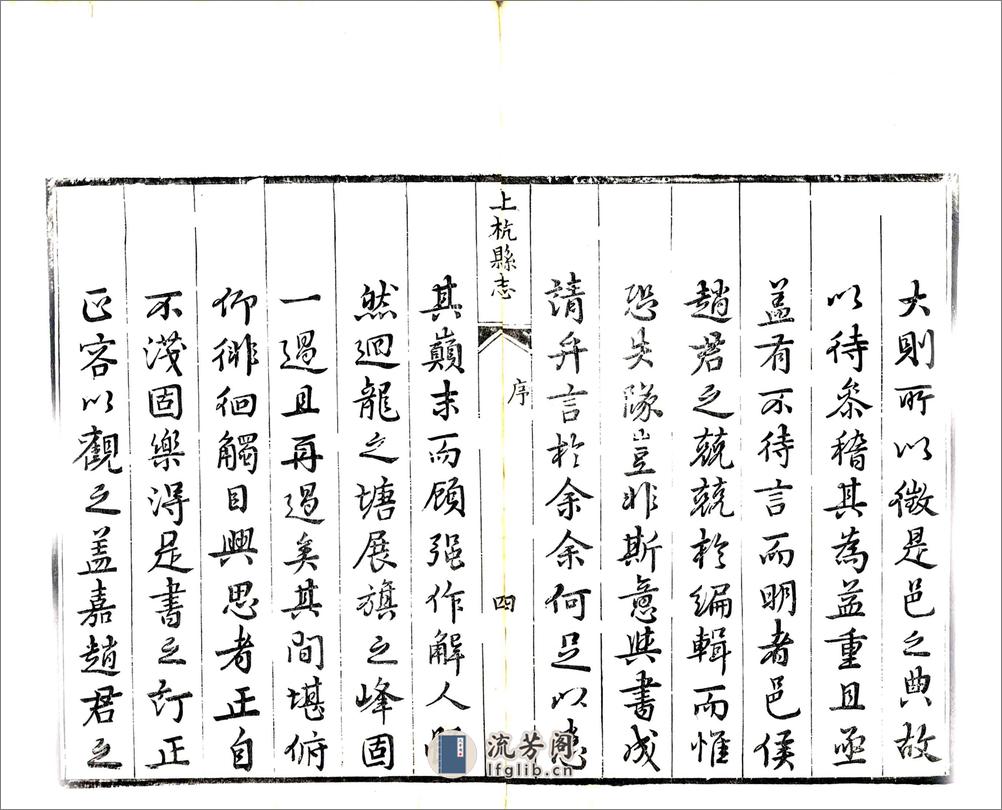 大則所以徵是邑之典故
以待叅稽其為益重且亟
盖有不待言而明者邑侯
趙君之兢兢於編輯而惟
恐失隊豈非斯意與書成
請弁言於余余何足以悉
其巔末而顧强作解人
然迴龍之塘展旗之峰固
一過且再過矣其間堪俯
仰徘徊觸目興思者正自
不淺固樂得是書之訂正
以觀之盖嘉趙君之
上杭縣志
序
四
流芳阁
lfglib.cn